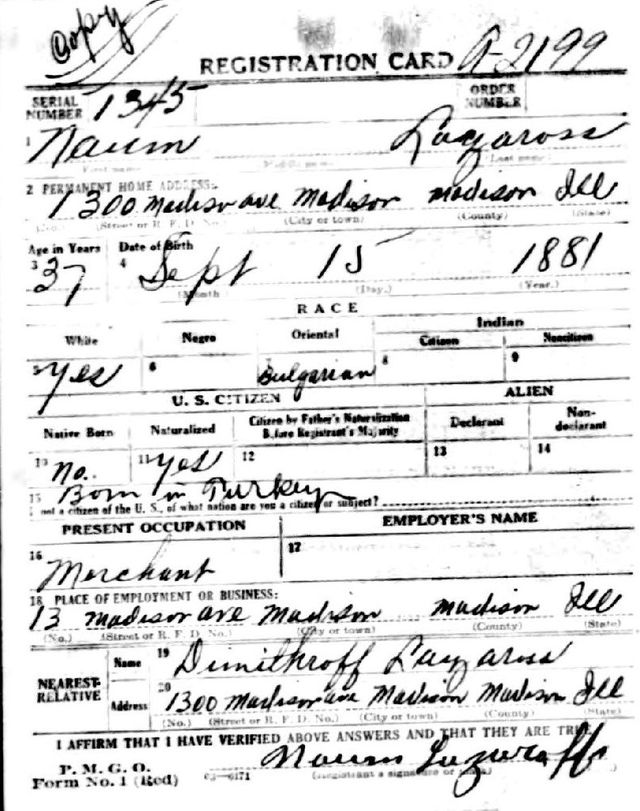 Copy
REGISTRATION CARD A-2199
SERIAL NUMBER 1345 ORDER NUMBER
1 Naum Lazaross
First name Middle name Last name
2 PERMANENT HOME ADDRESS:
1300 Madison ave Madison Madison Ill
(No.) (Street or R. F. D. No.) (City or town) (County) (State)
Age in Years Date of Birth
3 37 4 Sept 15 1881
(Month) (Day.) (Year.)
RACE
White Negro Oriental Indian
Citizen Noncitizen
5 Yes 6 7 Bulgarian 8 9
U. S. CITIZEN ALIEN
Native Born Naturalized Citizen by Father's Naturalization Before Registrant's Majority Declarant Non-declarant
10 No. 11 Yes 12 13 14
15 Born in Turkey
If not a citizen of the U. S., of what nation are you a citizen or subject?
PRESENT OCCUPATION EMPLOYER'S NAME
16 Merchant 17
18 PLACE OF EMPLOYMENT OR BUSINESS:
13 Madison ave Madison Madison Ill
(No.) (Street or R. F. D. No.) (City or town) (County) (State)
NEAREST RELATIVE Name 19 Dimithroff Lazaross
Address 20 1300 Madison ave Madison Madison Ill
(No.) (Street or R. F. D. No.) (City or town) (County) (State)
I AFFIRM THAT I HAVE VERIFIED ABOVE ANSWERS AND THAT THEY ARE TRUE
P. M. G. O. Naum Lazaroff
Form No. 1 (Red) 03-6171 (Registrant's signature or mark)